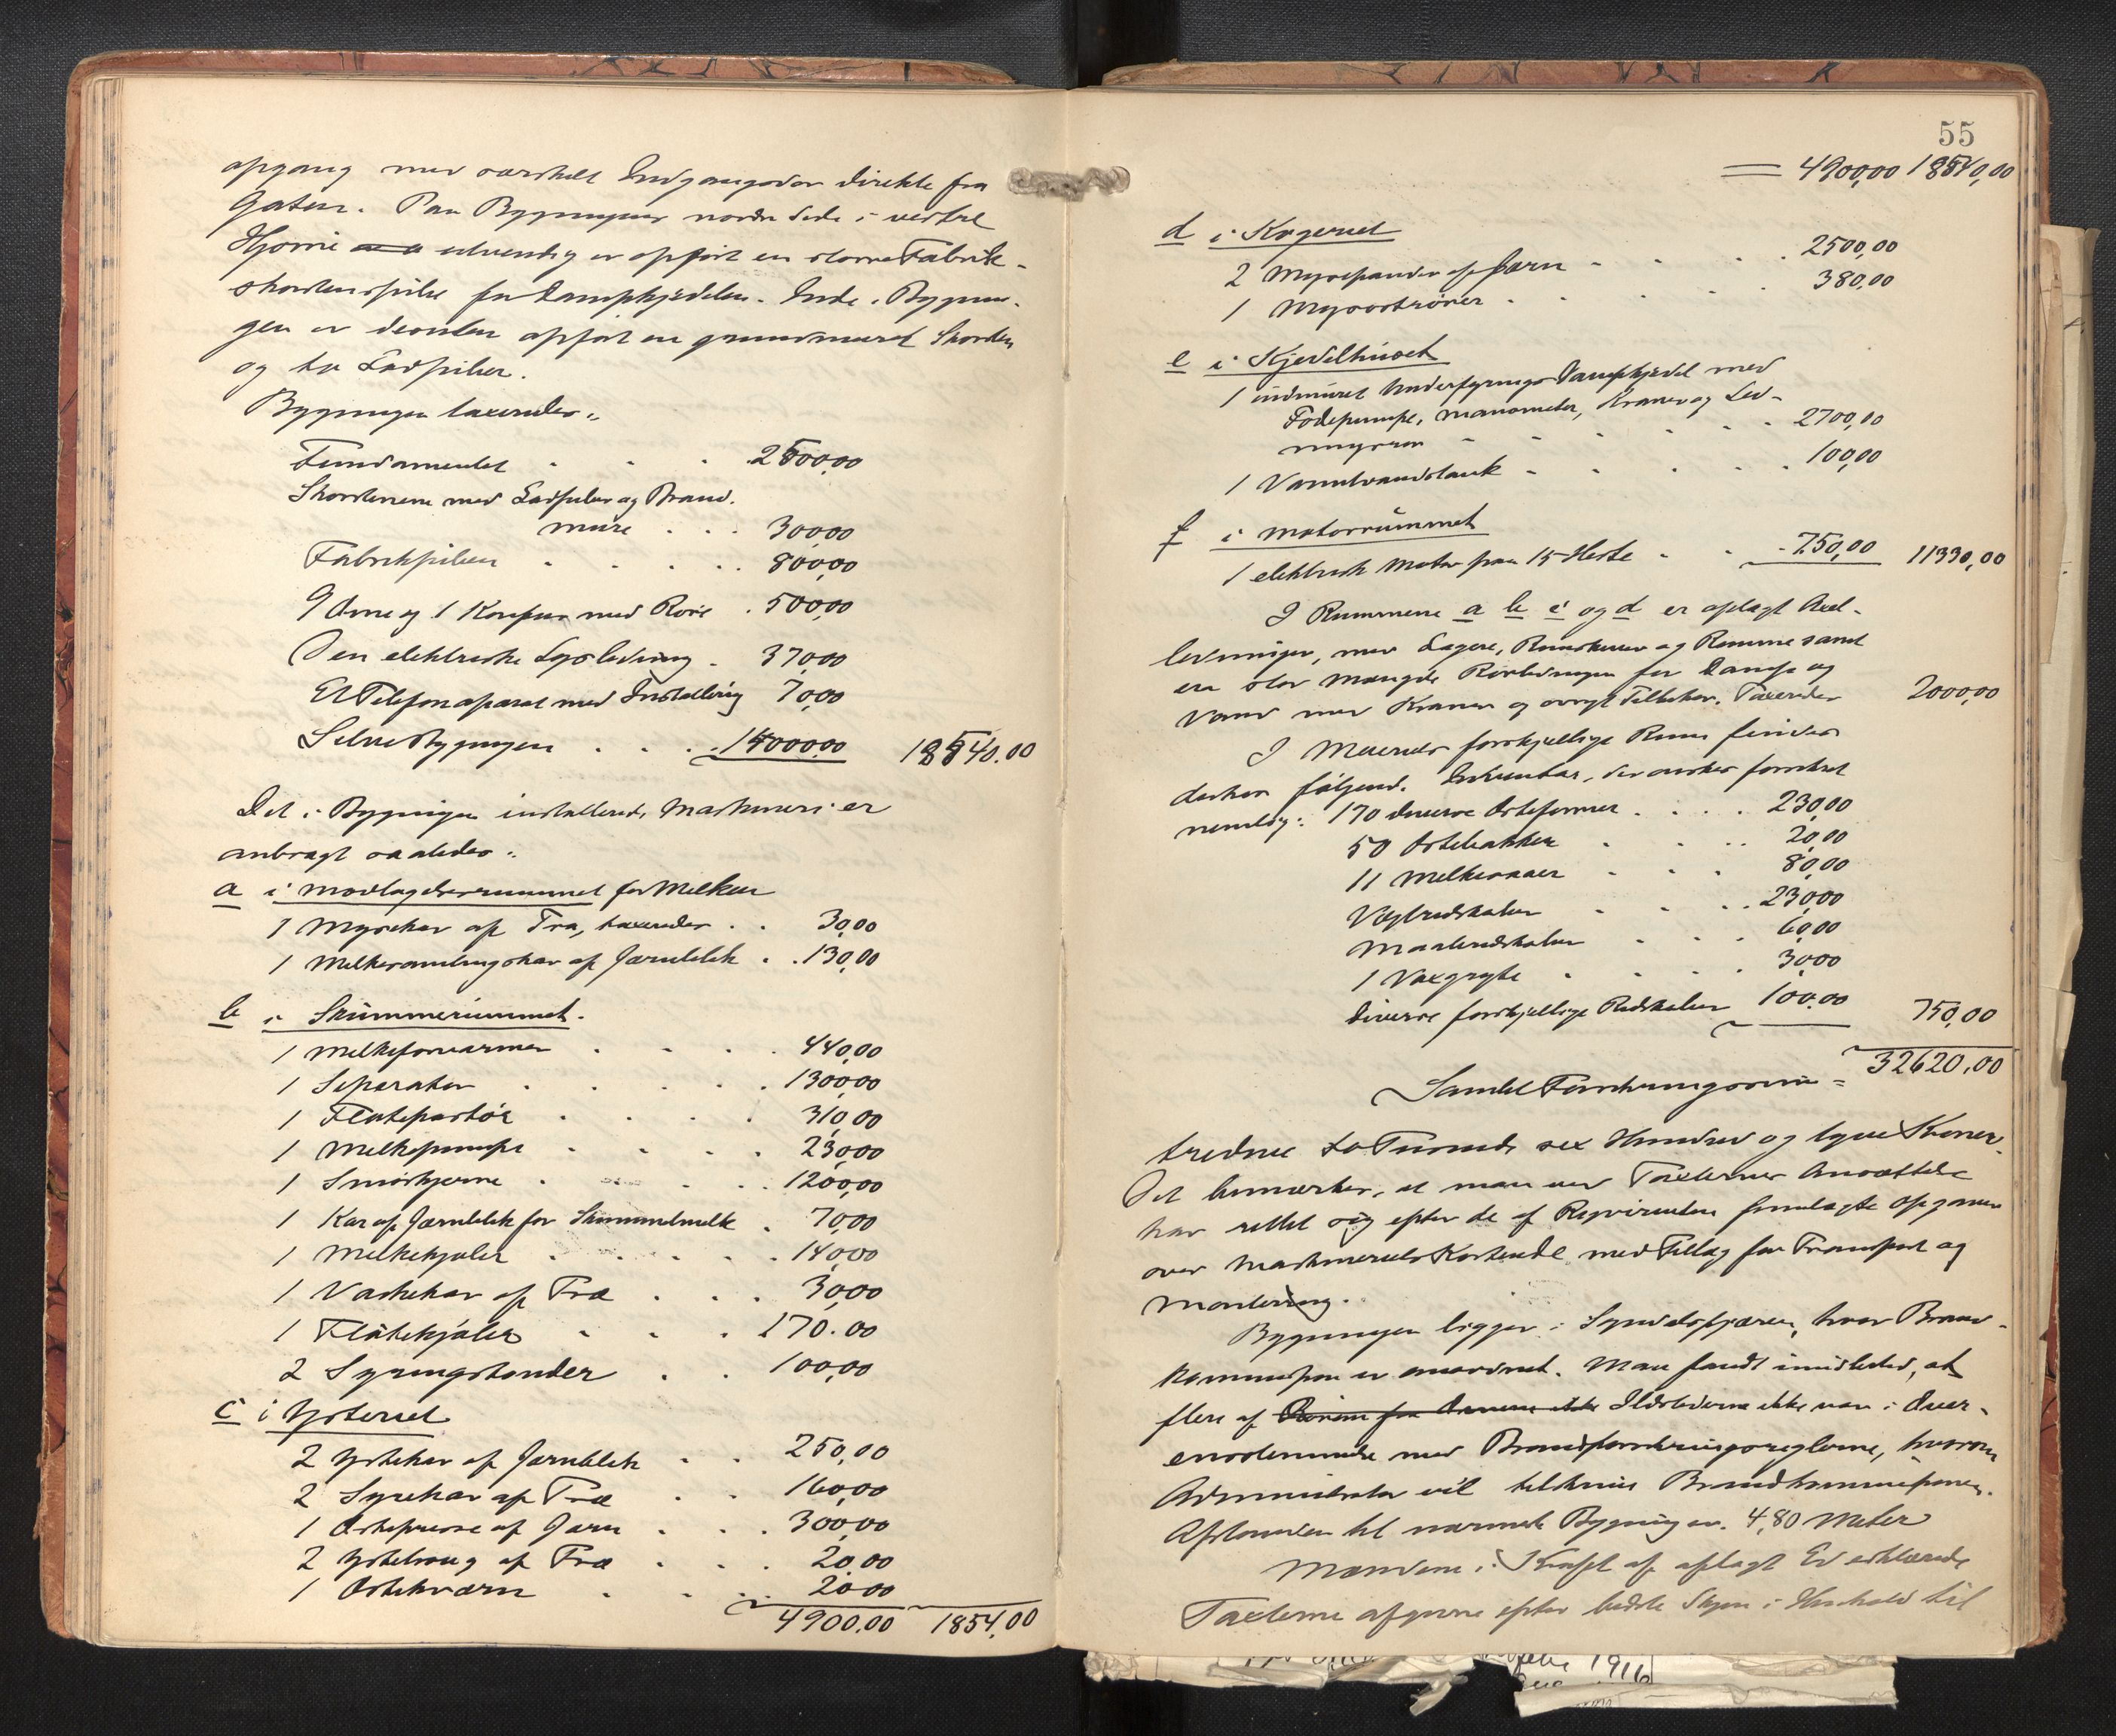 opgang med særskilt Indgangsdør direkte fra
Gaten. Paa Bygningens nordre Side i vestre
Hjørne udvendig er opført en større Fabrik-
skorstenspibe for Dampkjedelen. Inde i Bygnin-
gen er desuden opført en grundmuret Skorsten
og to Ladpiber.
Bygningen taxeredes:
Fundamentet . . . 2500,00
Skorstenene med Ladpiber og Brand-
mure . . . 300,00
Fabrikpiben . . . . 800,00
9 Ovne og 1 Komfur med Rør . 500,00
Den elektriske Lysledning . 370,00
Et Telefonaparat med Installering 70,00
Selve Bygningen . . . 14000,00 18540.00
Det i Bygningen installerede Maskineri er
anbragt saaledes:
a i Modtagelsesrummet for Melken
1 Mysekar af Træ, taxeredes . . 30,00
1 Melkesamlingskar af Jernblik . . 130,00
b i Skummerummet.
1 Melkeforvarmer . . . . 440,00
1 Separator . . . . 1300,00
1 Fløtepastør . . . . 310,00
1 Melkepumpe . . . . 230,00
1 Smørkjerne . . . . 1200,00
1 Kar af Jernblik for Skummetmelk . 70,00
1 Melkekjøler . . . . 140,00
1 Vaskekar af Træ . . . 30,00
1 Fløtekjøler . . . 170.00
2 Syrningstønder . . 100,00
c i Ysteriet
2 Ystekar af Jernblik . . 250,00
2 Syrekar af Træ . . 160,00
1 Ostepresse af Jern . . . 300,00
2 Ystetraug af Træ . . . 20,00
1 Ostekværn . . . 20,00
4900,00 1854,00
55
= 4900,00 18540,00
d i Kogeriet
2 Mysepander af Jærn . . . . 2500,00
1 Myseostrører . . . . 380,00
e i Kjedelhuset
1 indmuret Underfyrings Dampkjedel med
Fødepumpe, Manometer, Kraner og Led-
ningsrør . . . . . 2700,00
1 Varmtvandstank . . . . 100,00
f i Motorrummet
1 elektrisk Motor paa 15 Heste . . . 750,00 11330,00
I Rummene a b c og d er oplagt Axel-
ledninger, med Lagere, Remskiver og Remme samt
en stor Mængde Rørledninger for Damp og
Vand med Kraner og øvrigt Tilbehør. Taxeredes 2000,00
I Meieriets forskjellige Rum findes
desuden følgende Inventar, der ønskes forsikret
nemlig: 170 diverse Osteformer . . . . 230,00
50 Ostebakker . . . . 20,00
11 Melkespann . . . 80,00
Vægtredskaber . . . 230,00
Maaleredskaber . . . 60,00
1 Vaxgryte . . . . 30,00
Diverse forskjellige Redskaber 100.00 750,00
Samlet Forsikringssum = 32620.00
tredive to Tusinde sex Hundred og tyve Kroner.
Det bemærkes, at man ved Taxternes Ansættelse
har rettet sig efter de af Rekvirenten fremlagte Opgaver
over Maskineriets Kostende med Tillæg for Transport og
Montering.
Bygningen ligger i hvor Brand-
kommission er anordnet. Man fandt imidlertid, at
flere af Ildstederne ikke var i Over-
ensstemmelse med Brandforsikringsreglerne, hvorom
Administrator vil tilskrive Brandkommissionen.
Afstanden til nærmeste Bygning er 4,80 Meter
Mændene i Kraft af aflagt Ed erklærede
Taxterne afgivne efter bedste Skjøn i Henhold til
1916